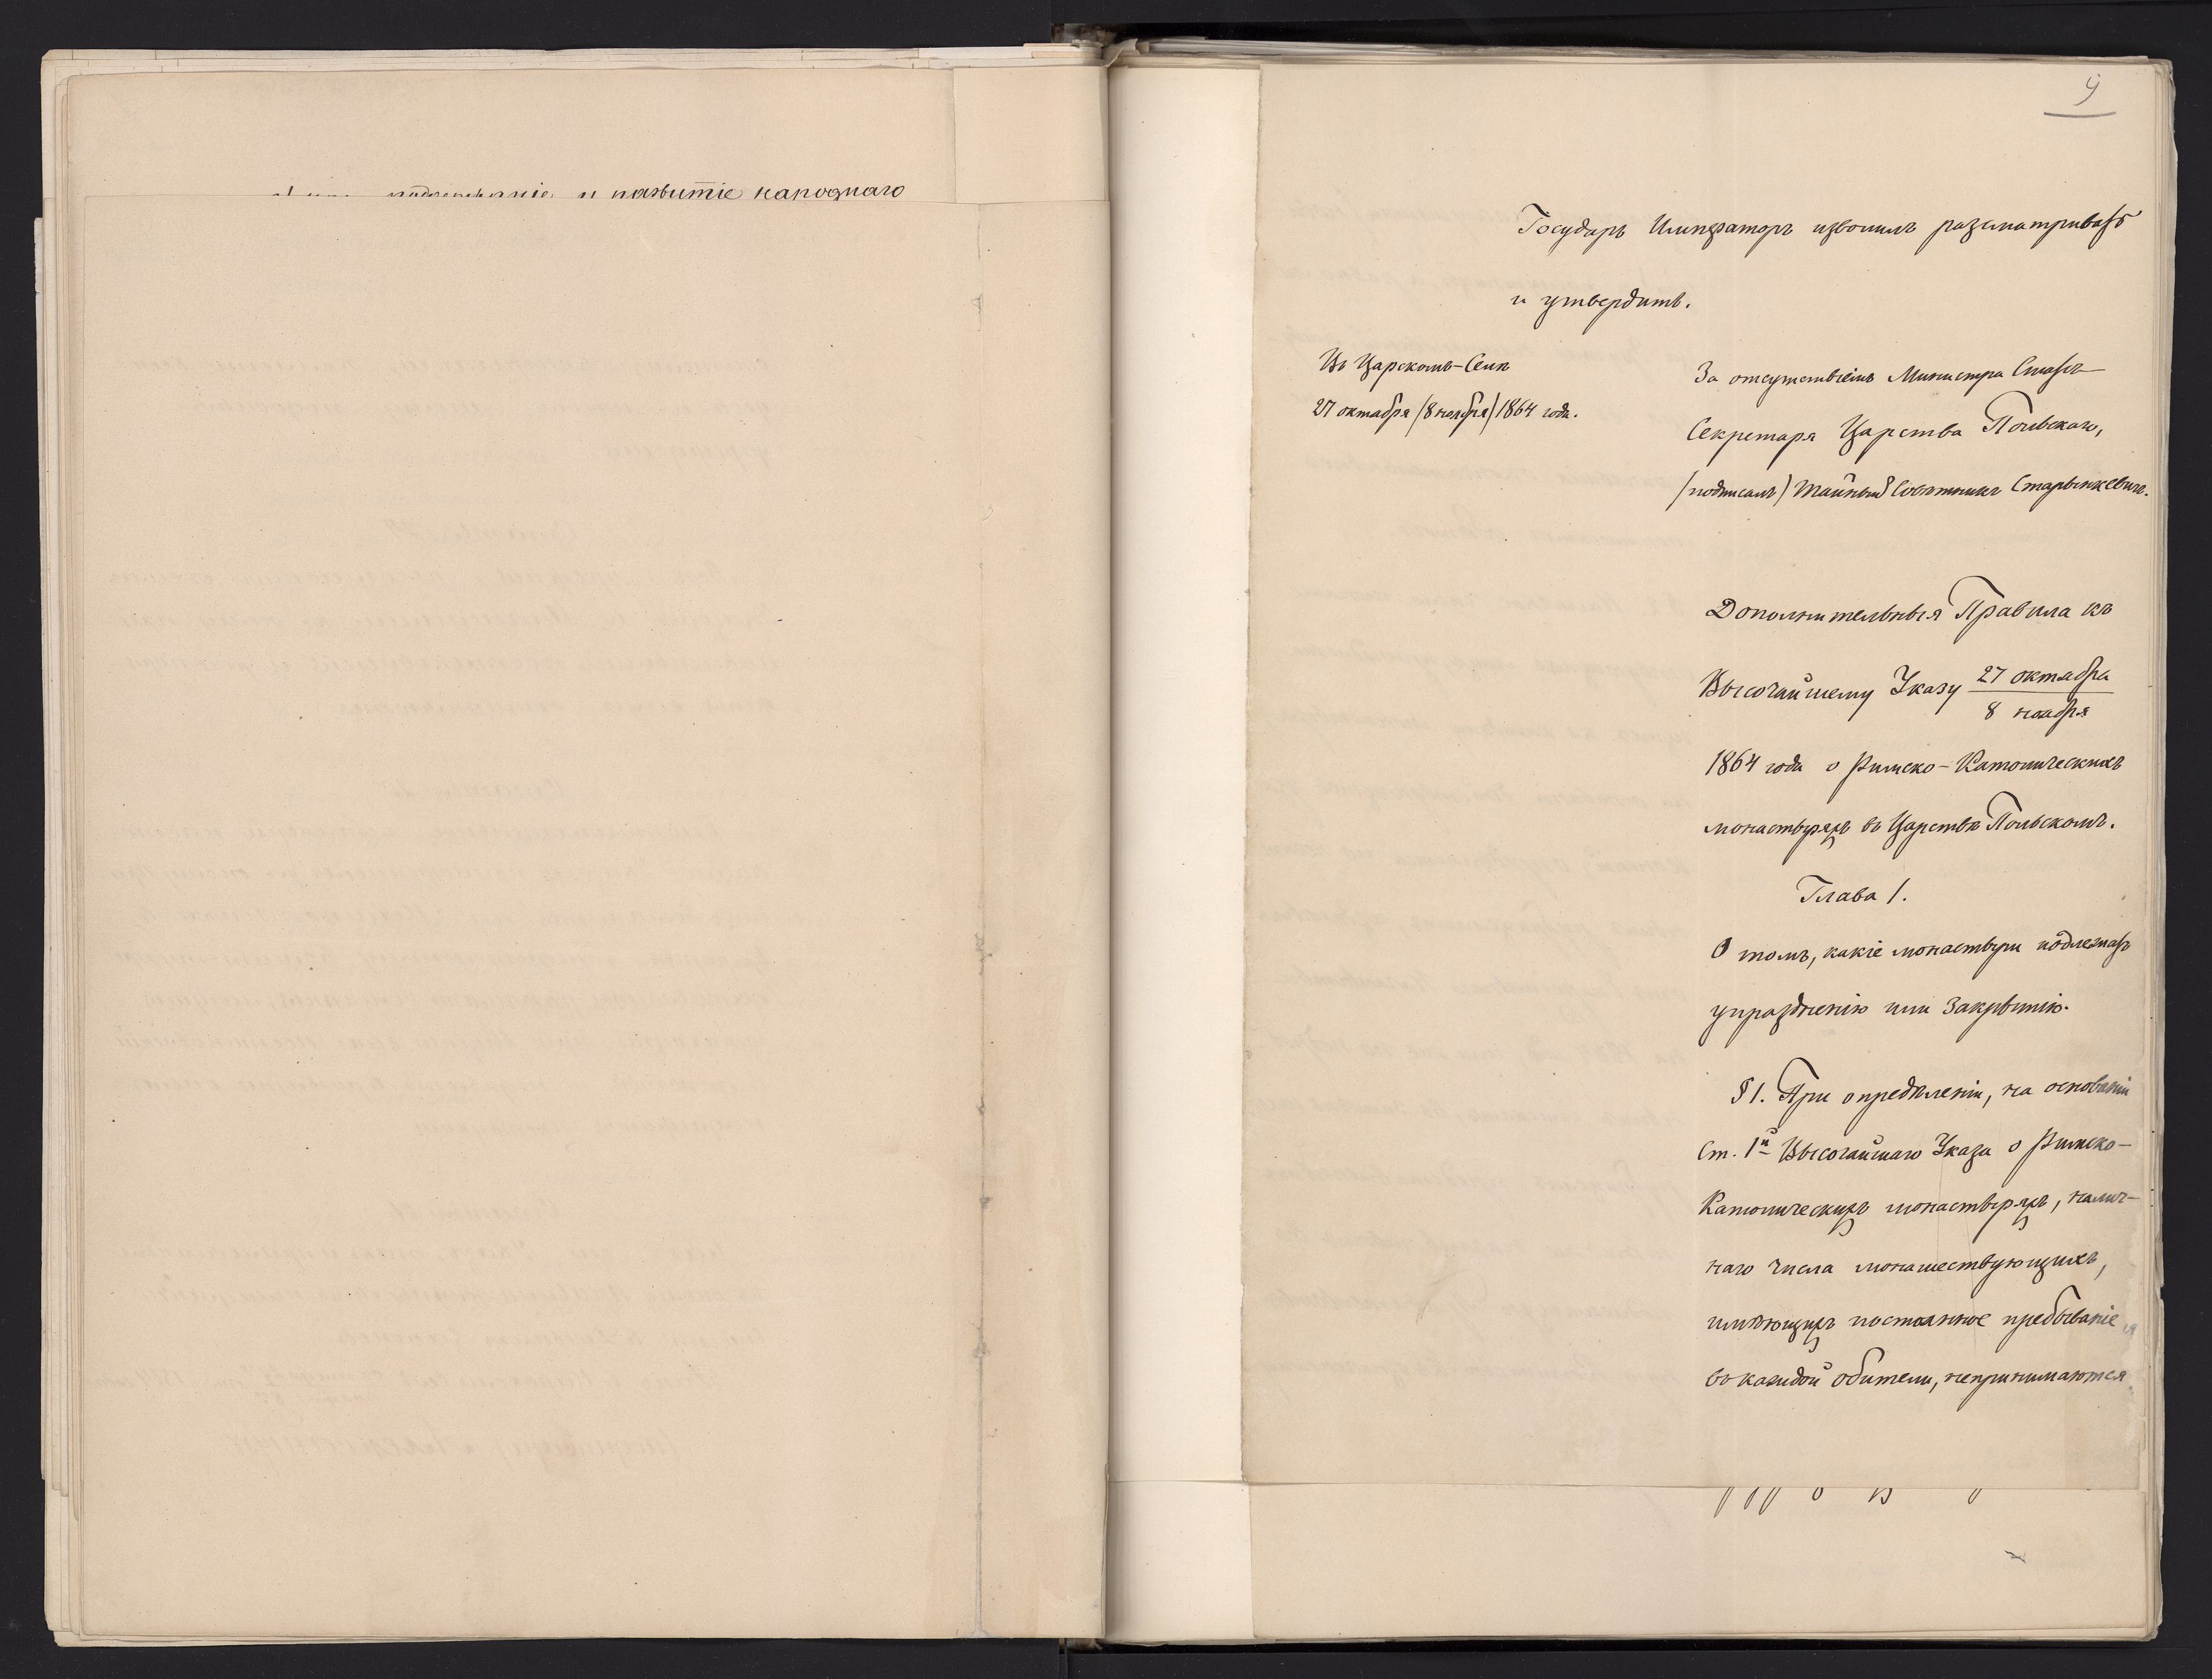 поддержаніе и развитіе народнаго
9
Государь Императоръ изволилъ разсматривать
и утвердить.
Въ Царскомъ-Селѣ
27 октября (8 ноября) 1864 года.
За отсутствіемъ Министра Статсъ-
Секретаря Царства Польскаго,
(подписалъ) Тайный Совѣтникъ Старынкевичъ.
Дополнительныя Правила къ
Высочайшему Указу 27 октября
8 ноября
1864 года о Римско-Католическихъ
монастыряхъ въ Царствѣ Польскомъ.
Глава 1.
О томъ, какіе монастыри подлежатъ
упраздненію или закрытію.
§ 1. При опредѣленіи, на основаніи
ст. 1й Высочайшаго Указа о Римско-
Католическихъ монастыряхъ, налич-
наго числа монашествующихъ,
имѣющихъ постоянное пребываніе
въ каждой обители, непринимаются